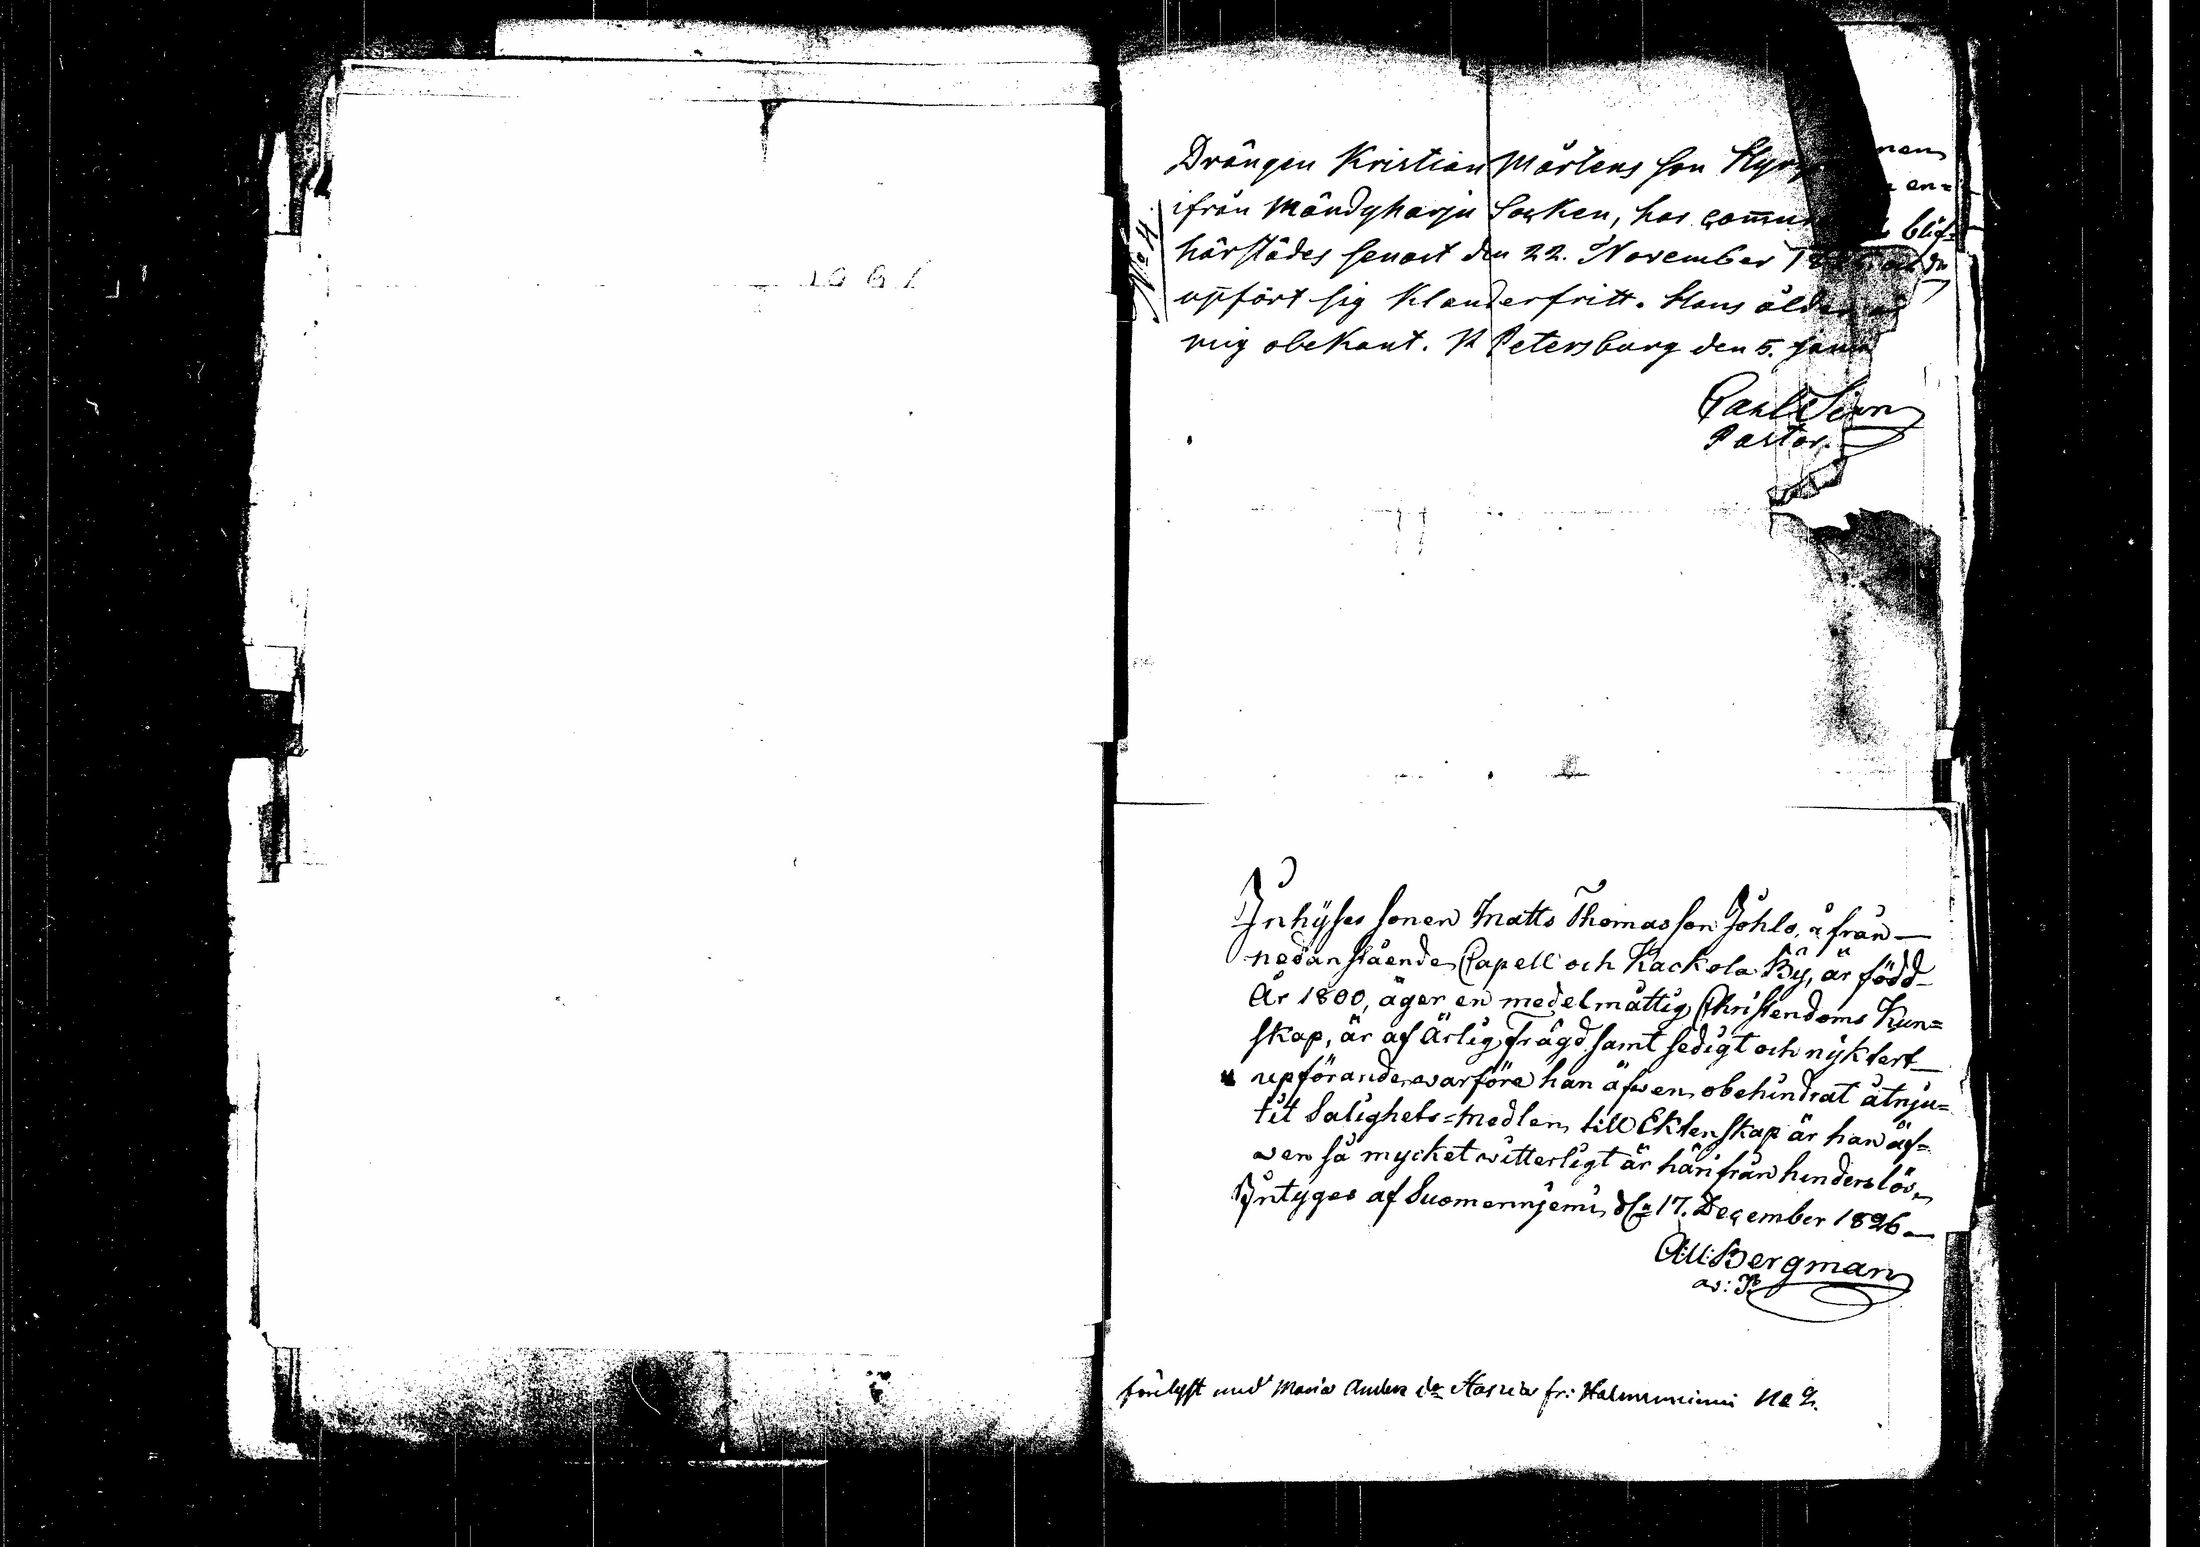 Drängen Kristian Mårtens son
ifrån Mändyharju Socken, har
härstädes senast den 22. November
upfört sig Klanderfritt. Hans
mig obekant. St Petersburg den 5.
Pastor.
Inhyses sonen Matts Thomasson ifrån
nedanstående Capell och Kackola By, är född
År 1800, äger en medelmåttig Christendoms Kun=
skap, är af Ärlig Frägd samt sedigt och nyktert
upförande, warföre han äfwen obehindrat åtnju=
tit Salighets=medlen, till Ektenskap är han äf=
wen så mycket witterligt är härifrån hinderslös,
Intygas af Suomenniemi, d. 17. December 1826
Bergman
No 4
med Maria Anders dr fr: